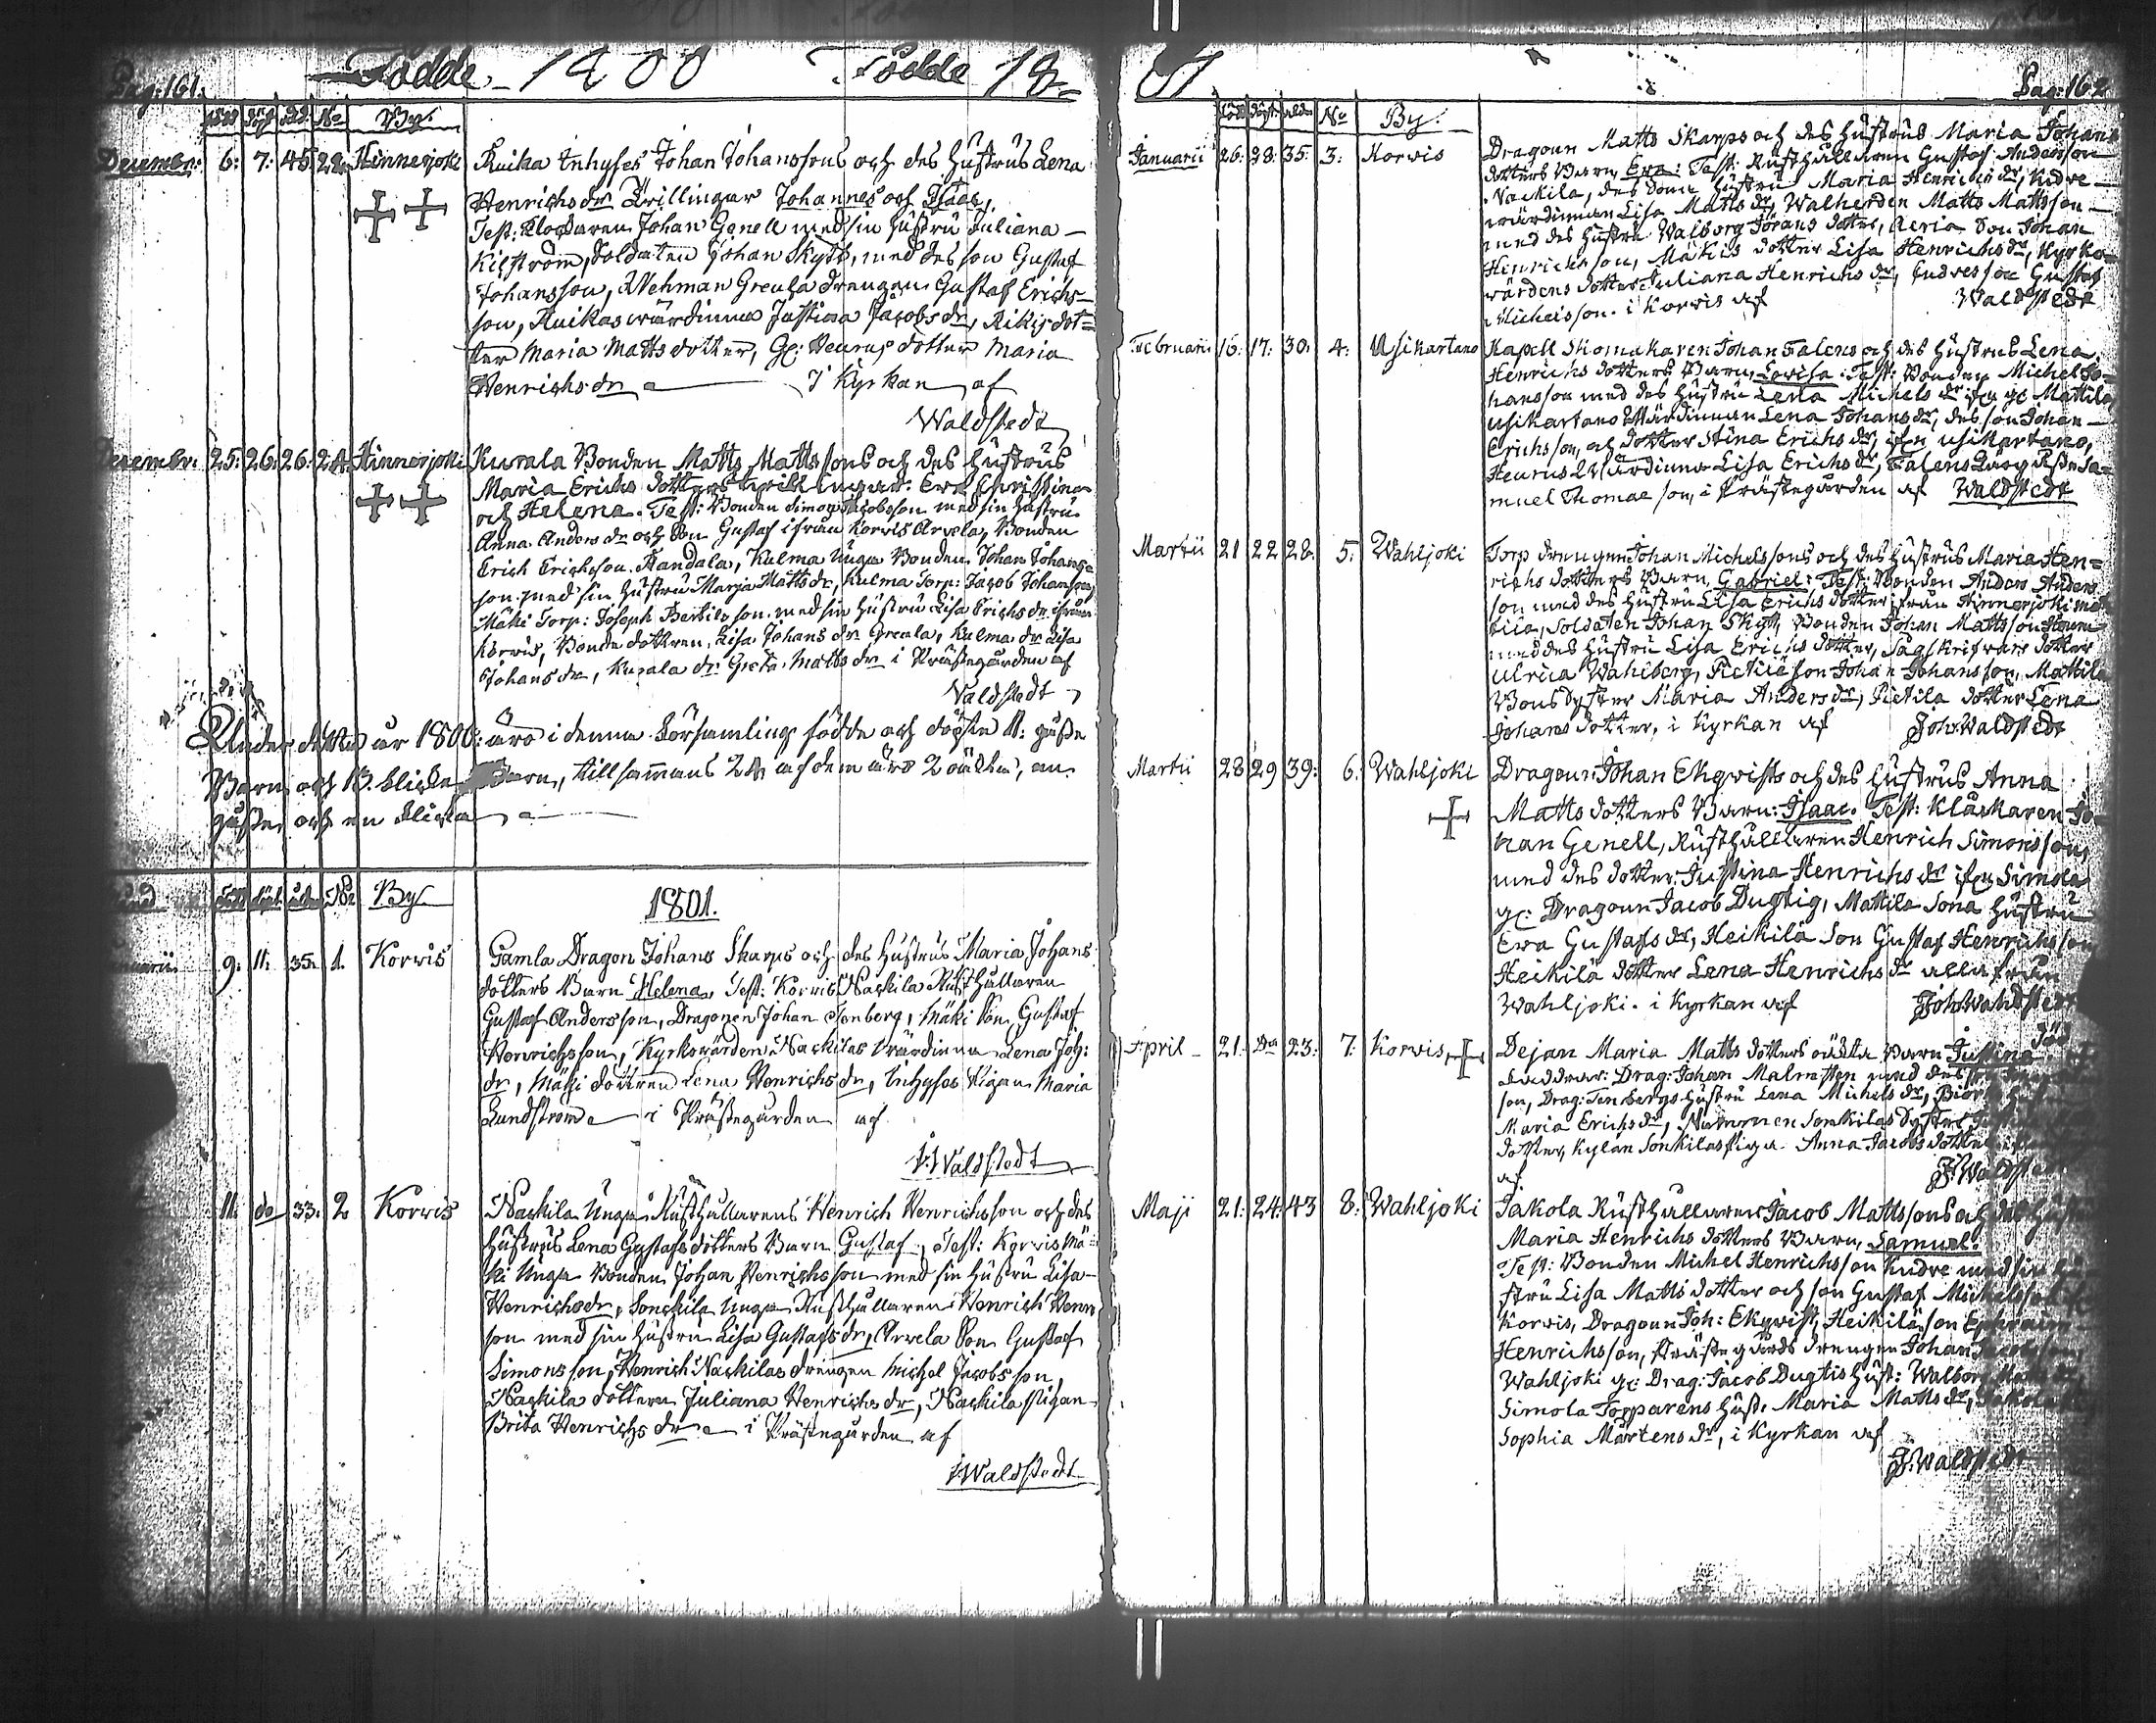 Pag: 161.
Födde 1800 Födde 18
By.
Decembr: 6: 7: 45 Hinnerjoki Ruika Inhyses Johan Johanssons och des Hustrus Lena
Henrichs dr Tvillingar Johannes och Isaac,
Test: Klockaren Johan Genell med sin Hustru Juliana
Kilström, Soldaten Johan Skytt, med des son Gustaf
Johansson, Greula Drengen Gustaf Erichs-
son, Ruikas wärdinna Justina Jacobs dr, Rikis dot=
ter Maria Matts dotter, Gl: Heurus dotter Maria
Henrichs dr i Kyrkan af
Waldstedt
Decembr: 25: 26: 26: 24: Hinnerjoki Kurala Bonden Matts Mattssons och des Hustrus
Maria Erichs dotters twillingar: Ewa Christina
och Helena. Test: Bonden Simon Jacobsson med sin Hustru
Anna Anders dr och Son Gustaf ifrån Korwis Arwela, Bonden
Erich Erichsson Handala, Kulma Unga Bonden Johan Johans=
son med sin Hustru Marja Matts dr, Kulma Torp: Jacob Johansson,
Mäki Torp: Joseph Bertilsson med sin Hustru Lisa Erichs dr ifrån
Korwis, Bonde dottren Lisa Johans dr Greula, Kulma dr Lisa
Johans dr, Kurala dr Greta Matts dr i Prästegården af
Waldstedt
Under detta år 1800: äro i denna Församling födde och döpte 11: gosse
Barn och 13. flicke Barn, tillsammans 24 af dem äro 2 oäkta, en
gosse och en flicka
Född döpt ålder No By
1801.
9: 11: 35. 1. Korwis Gamla Dragon Johans Skarps och des Hustrus Maria Johans
dotters Barn Helena, Test: Korwis Nackila Rusthållaren
Gustaf Andersson, Dragonen Johan Tenberg, Mäki Son Gustaf
Henrichsson, Kyrkowärden Nackilas Wärdinna Lena Joh:
dr, Mäki dottren Lena Henrichs dr, Inhyses Pigan Maria
Lundström i Prästegården af
J: Waldstedt
11. do 33: 2 Korwis Nackila Unga Rusthållarens Henrich Henrichsson och des
Hustrus Lena Gustafs dotters Barn Gustaf, Test: Korwis Mä=
ki Unga Bonden Johan Henrichsson med sin Hustru Lisa
Henrichs dr, Sonckila Unga Rusthållaren Henrich Henr
son med sin Hustru Lisa Gustafs dr, Arwela Son Gustaf
Simonsson, Henrich Nackilas drengen Michel Jacobsson,
Nackila dottern Juliana Henrichs dr, Nackila Pigan
Brita Henrichs dr i Prästegården af
J: Waldstedt
01 Pag: 162
Född Döpt ålder No By.
Januarii 26: 28: 35: 3: Korwis Dragoun Matts Skarps och des Hustrus Maria Johans
dotters Barn, Ewa: Test: Rusthållaren Gustaf Andersson
Nackila, des Sons Hustru Maria Henrichs dr, Kudre
wärdinnan Lisa Matts dr, Walherden Matts Mattsson
med des Hustru Walborg Jörans dotter, Son Johan
Henrichsson, Mäkis dotter Lisa Henrichs dr, Kyrko=
wärdens dotter Juliana Henrichs dr, Kudres son Gustaf
Michelsson. i Korwis af Waldstedt
Februarii 16: 17: 30: 4: Usikartano Kapell Skomakaren Johan Falens och des Hustrus Lena
Henrichs dotters Barn, Lovisa: Test: Bonden Michel Jo=
hansson med des Hustru Lena Michels dr ifrån gl: Mattila,
Usikartano Wärdinnan Lena Johans dr, des son Johan
Erichsson, och dotter Stina Erichs dr, ifrån Usikartano,
Heurus Wärdinna Lisa Erichs dr, Falens Lärg Påse Sa=
muel Thomasson, i Prästegården af Waldstedt
Martii 21 22 28. 5: Wahljoki Torp drengen Johan Michelssons och des Hustrus Maria Hen=
richs dotters Barn, Gabriel: Test: Bonden Anders Anders
son med des Hustru Lisa Erichs dotter ifrån Hinnerjoki
Soldaten Johan Skytt, Bonden Johan Mattsson
med des Hustru Lisa Erichs dotter, dotter
Ulrica Wahlberg, son Johan Johansson, Mattila
Bons Syster Maria Anders dr, Pietila dotter Lena
Johans dotter, i Kyrkan af Joh: Waldstedt
Martii 28 29 39: 6: Wahljoki Dragoun Johan Ekqwists och des Hustrus Anna
Matts dotters Barn: Isaac. Test: Kläckaren Jo=
han Genell, Rusthållaren Henrich Simonsson,
med des dotter Justina Henrichs dr ifrån Simola
gl: Dragoun Jacob Dugtig, Mattila Sona Hustru
Ewa Gustafs dr, Heikilä Son Gustaf Henrichsson
Heikilä dotter Lena Henrichs dr alla från
Wahljoki. i Kyrkan af Joh: Waldstedt
April 21: Do 23: 7: Korwis Dejan Maria Matts dotters oäkta Barn Justina
Faddrar: Drag: Johan Malmsten med des
son, Drag: Tenbergs Hustru Lena Michels dr,
Maria Erichs dr, Nummen Sonkilas Syster
dotter, Kylän Sonkilas Piga Anna Jacobs dotter
af. J: Waldstedt
Maji 21: 24: 43 8: Wahljoki Jakola Rusthållaren Jacob Mattssons och des Hustrus
Maria Henrichs dotters Barn, Samuel.
Test: Bonden Michel Henrichsson Kudre med sin Hu
stru Lisa Matts dotter och son Gustaf Michelsson
Korwis, Dragoun Joh: Ekqwist, Heikilä son Ephraim
Henrichsson, Prästegårds drengen Johan
Wahljoki gl: Drag: Jacob Dugtis Hust: Walborg
Simola Torparens Hust. Maria Matts dr,
Sophia Mårtens dr, i Kyrkan af
J: Waldstedt